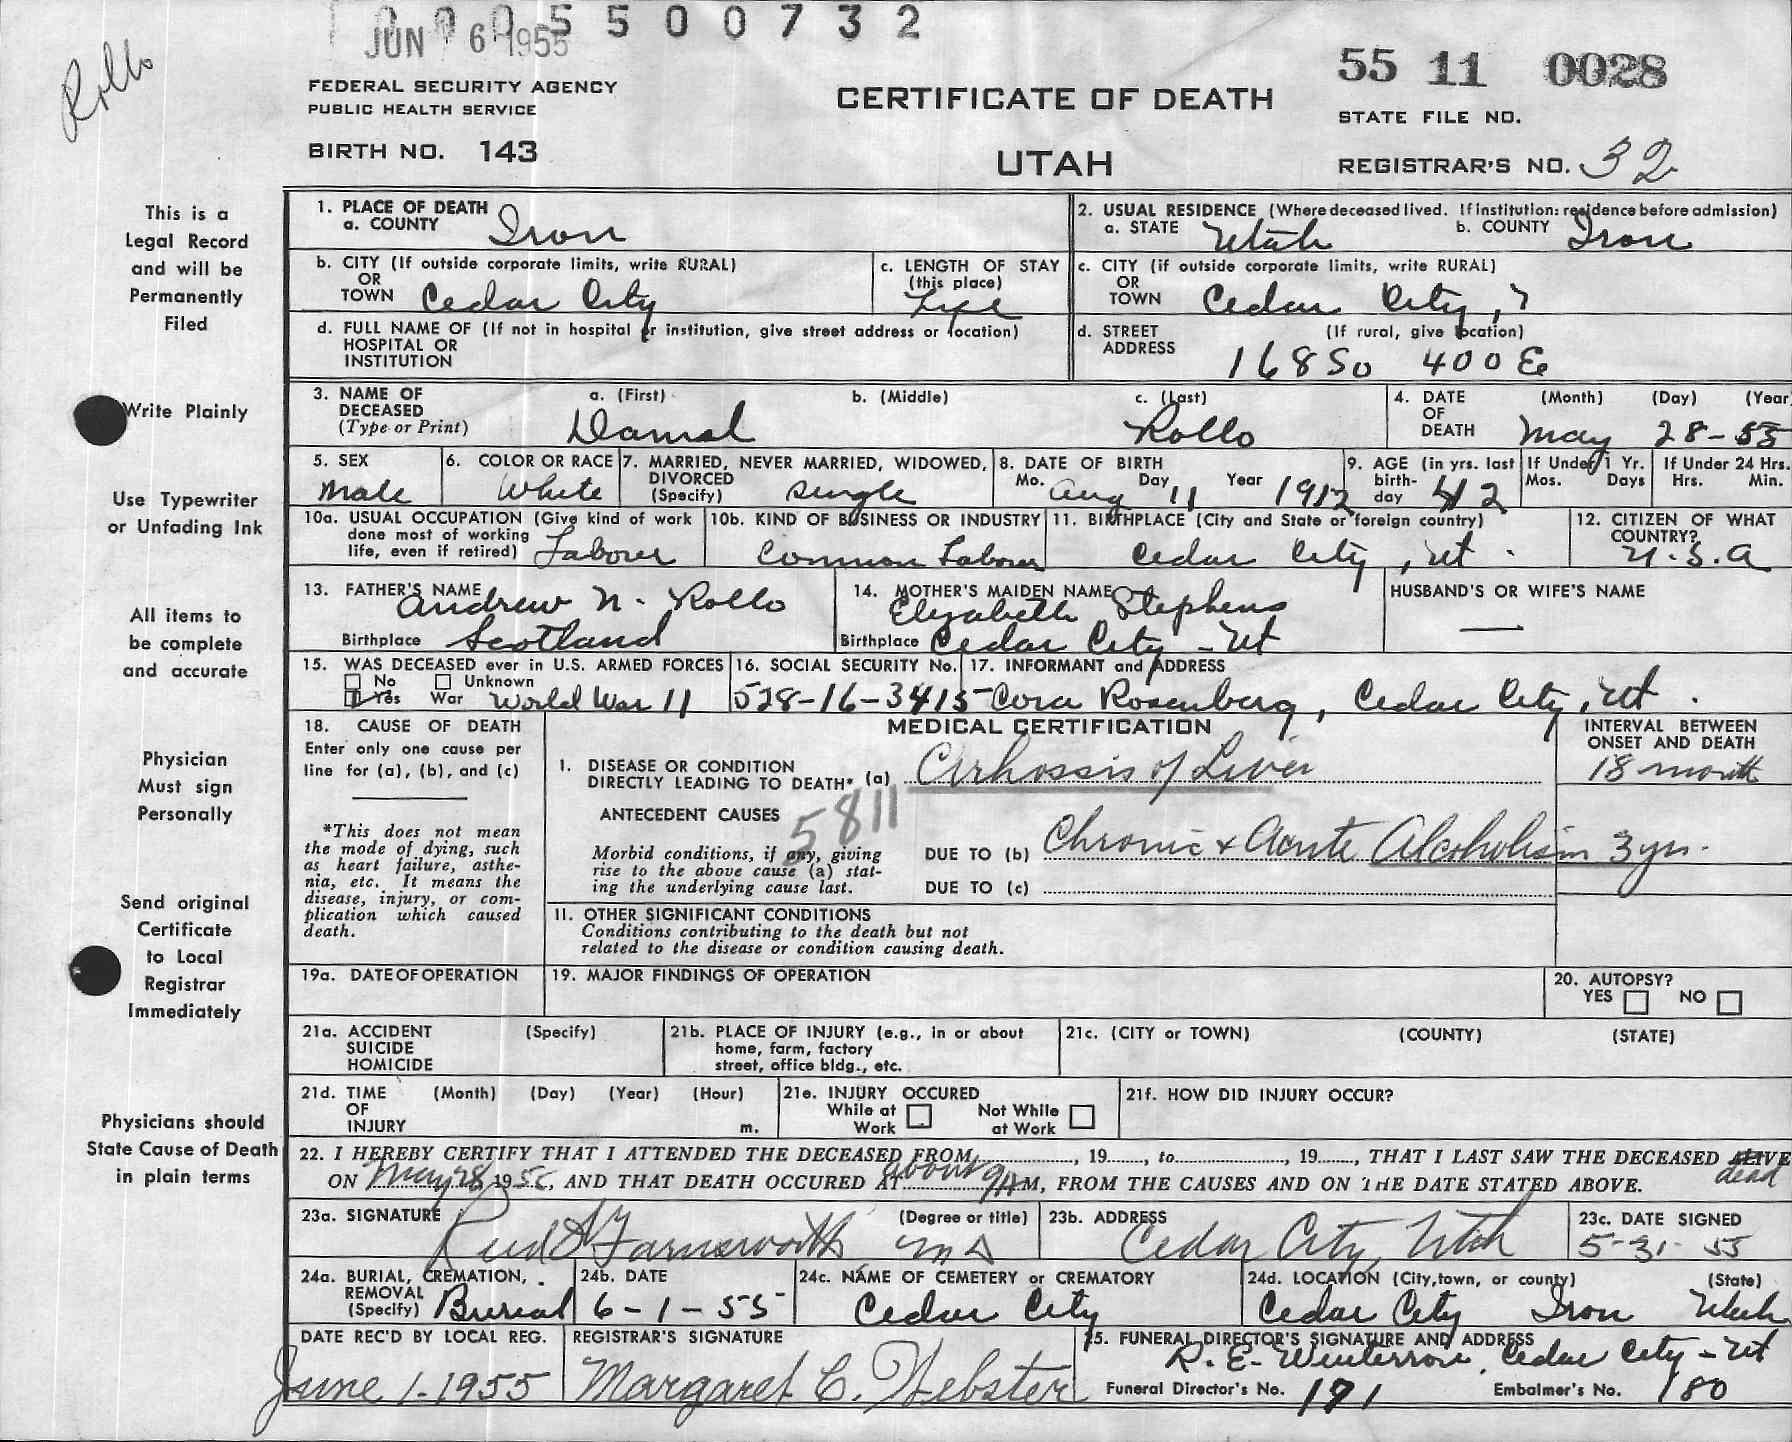 0005500732
JUN 6 1955
Rollo
55 11 0028
FEDERAL SECURITY AGENCY
PUBLIC HEALTH SERVICE
CERTIFICATE OF DEATH
STATE FILE NO.
BIRTH NO. 143
UTAH
REGISTRAR'S NO. 32
This is a
Legal Record
and will be
Permanently
Filed
Write Plainly
Use Typewriter
or Unfading Ink
All items to
be complete
and accurate
Physician
Must sign
Personally
Send original
Certificate
to Local
Registrar
Immediately
Physicians should
State Cause of Death
in plain terms
1. PLACE OF DEATH
a. COUNTY Iron
2. USUAL RESIDENCE (Where deceased lived. If institution: residence before admission)
a. STATE Utah b. COUNTY Iron
b. CITY (If outside corporate limits, write RURAL)
OR
TOWN Cedar City
c. LENGTH OF STAY
(this place)
Life
c. CITY (if outside corporate limits, write RURAL)
OR
TOWN Cedar City,
d. FULL NAME OF (If not in hospital or institution, give street address or location)
HOSPITAL OR
INSTITUTION
d. STREET (If rural, give location)
ADDRESS 168 So 400 E
3. NAME OF
DECEASED
(Type or Print)
a. (First) b. (Middle) c. (Last)
Daniel Rollo
4. DATE (Month) (Day) (Year
OF
DEATH May 28-55
5. SEX
Male
6. COLOR OR RACE
White
7. MARRIED, NEVER MARRIED, WIDOWED,
DIVORCED
(Specify) Single
8. DATE OF BIRTH
Mo. Aug Day 11 Year 1912
9. AGE (in yrs. last
birth-
day 42
If Under 1 Yr.
Mos. Days
If Under 24 Hrs.
Hrs. Min.
10a. USUAL OCCUPATION (Give kind of work
done most of working
life, even if retired) Laborer
10b. KIND OF BUSINESS OR INDUSTRY
Common Laborer
11. BIRTHPLACE (City and State or foreign country)
Cedar City, Ut.
12. CITIZEN OF WHAT
COUNTRY?
U.S.A
13. FATHER'S NAME
Andrew N. Rollo
Birthplace Scotland
14. MOTHER'S MAIDEN NAME
Elizabeth Stephens
Birthplace Cedar City - Ut
HUSBAND'S OR WIFE'S NAME
15. WAS DECEASED ever in U.S. ARMED FORCES
No Unknown
Yes War World War 11
16. SOCIAL SECURITY No.
528-16-3415
17. INFORMANT and ADDRESS
Cora Rosenberg, Cedar City, Ut.
18. CAUSE OF DEATH
Enter only one cause per
line for (a), (b), and (c)
*This does not mean
the mode of dying, such
as heart failure, asthe-
nia, etc. It means the
disease, injury, or com-
plication which caused
death.
MEDICAL CERTIFICATION
INTERVAL BETWEEN
ONSET AND DEATH
1. DISEASE OR CONDITION
DIRECTLY LEADING TO DEATH* (a) Cirhossis of Liver 18 month
ANTECEDENT CAUSES
5811
Morbid conditions, if any, giving
rise to the above cause (a) stat-
ing the underlying cause last.
DUE TO (b) Chronic & Acute Alcoholism 3 yrs.
DUE TO (c)
11. OTHER SIGNIFICANT CONDITIONS
Conditions contributing to the death but not
related to the disease or condition causing death.
19a. DATE OF OPERATION
19. MAJOR FINDINGS OF OPERATION
20. AUTOPSY?
YES NO
21a. ACCIDENT (Specify)
SUICIDE
HOMICIDE
21b. PLACE OF INJURY (e.g., in or about
home, farm, factory
street, office bldg., etc.
21c. (CITY or TOWN) (COUNTY) (STATE)
21d. TIME (Month) (Day) (Year) (Hour)
OF
INJURY m.
21e. INJURY OCCURED
While at Work Not While at Work
21f. HOW DID INJURY OCCUR?
22. I HEREBY CERTIFY THAT I ATTENDED THE DECEASED FROM, 19, to, 19, THAT I LAST SAW THE DECEASED ALIVE
dead
ON May 28 1955, AND THAT DEATH OCCURED AT about 9AM, FROM THE CAUSES AND ON THE DATE STATED ABOVE.
23a. SIGNATURE (Degree or title)
Farnsworth MD
23b. ADDRESS
Cedar City Utah
23c. DATE SIGNED
5-31-55
24a. BURIAL, CREMATION,
REMOVAL
(Specify) Burial
24b. DATE
6-1-55
24c. NAME OF CEMETERY or CREMATORY
Cedar City
24d. LOCATION (City, town, or county) (State)
Cedar City Iron Utah
DATE REC'D BY LOCAL REG.
June 1-1955
REGISTRAR'S SIGNATURE
Margaret C. Webster
25. FUNERAL DIRECTOR'S SIGNATURE AND ADDRESS
Cedar City - Ut
Funeral Director's No. 171 Embalmer's No. 180